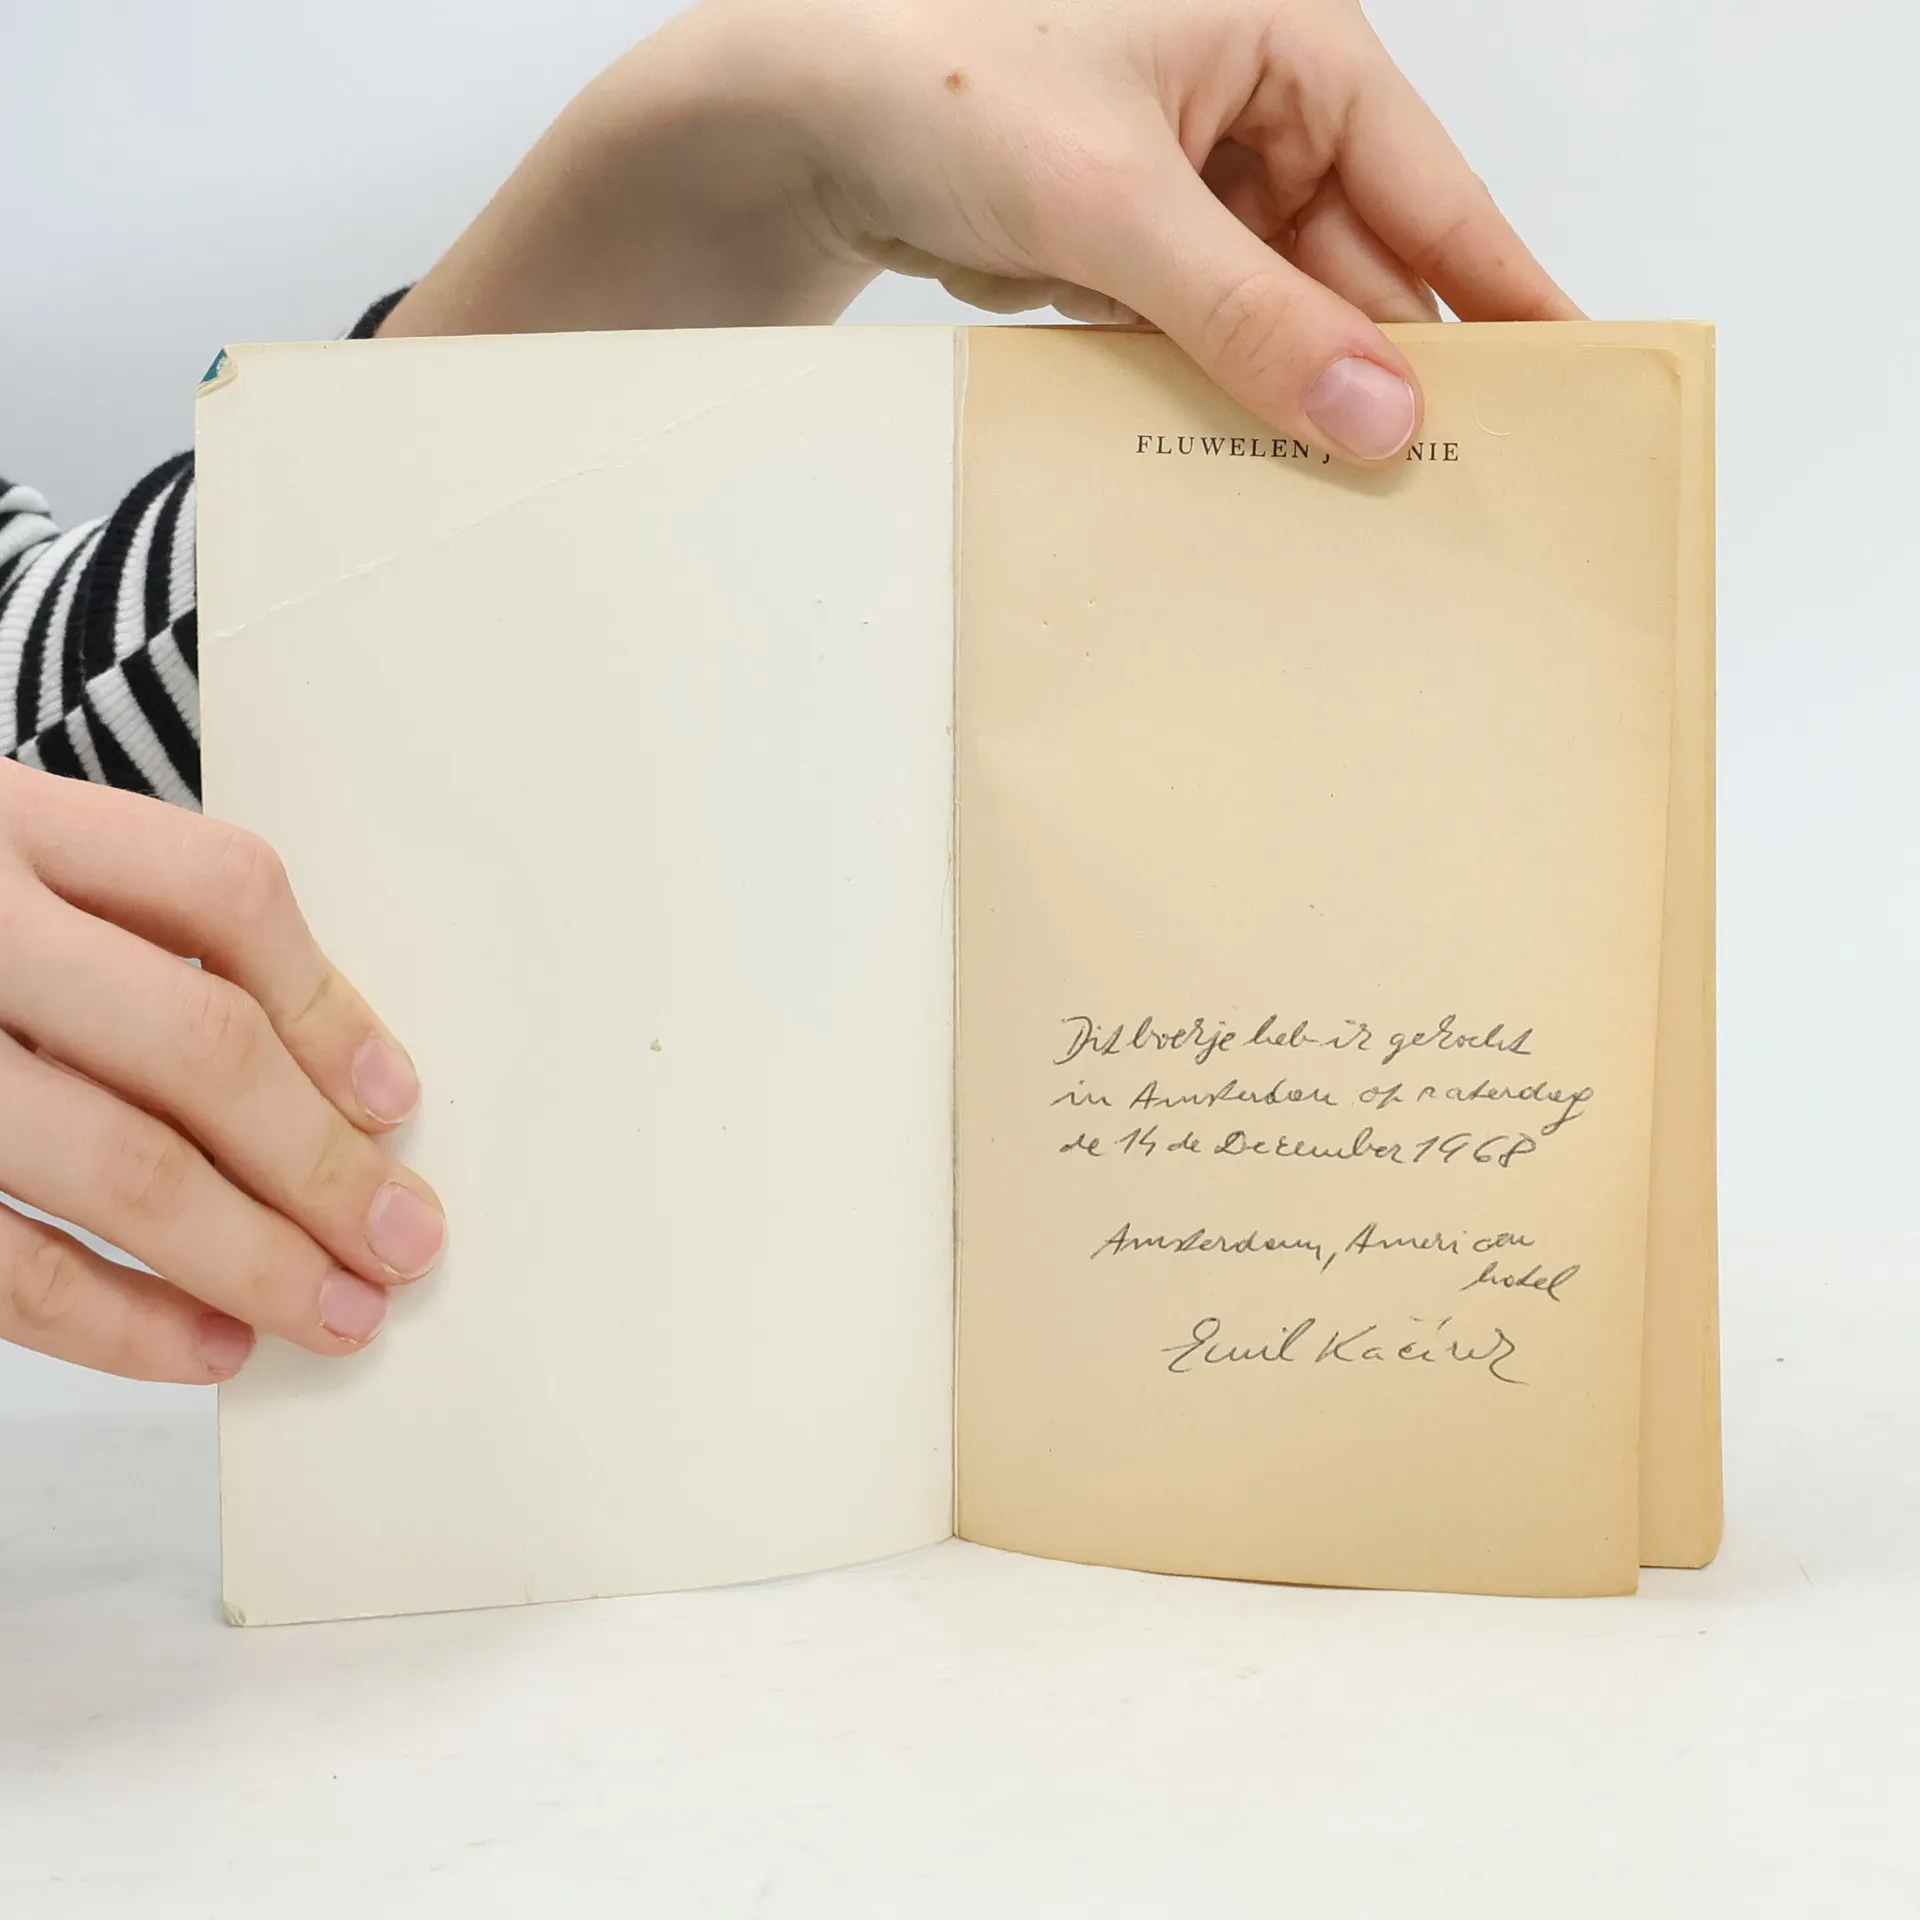 FLUWELEN J NIE
Dit boekje heb ik gekocht
in Amsterdam op zaterdag
de 14 de December 1968
Amsterdam, American
hotel
Emil Kačírek